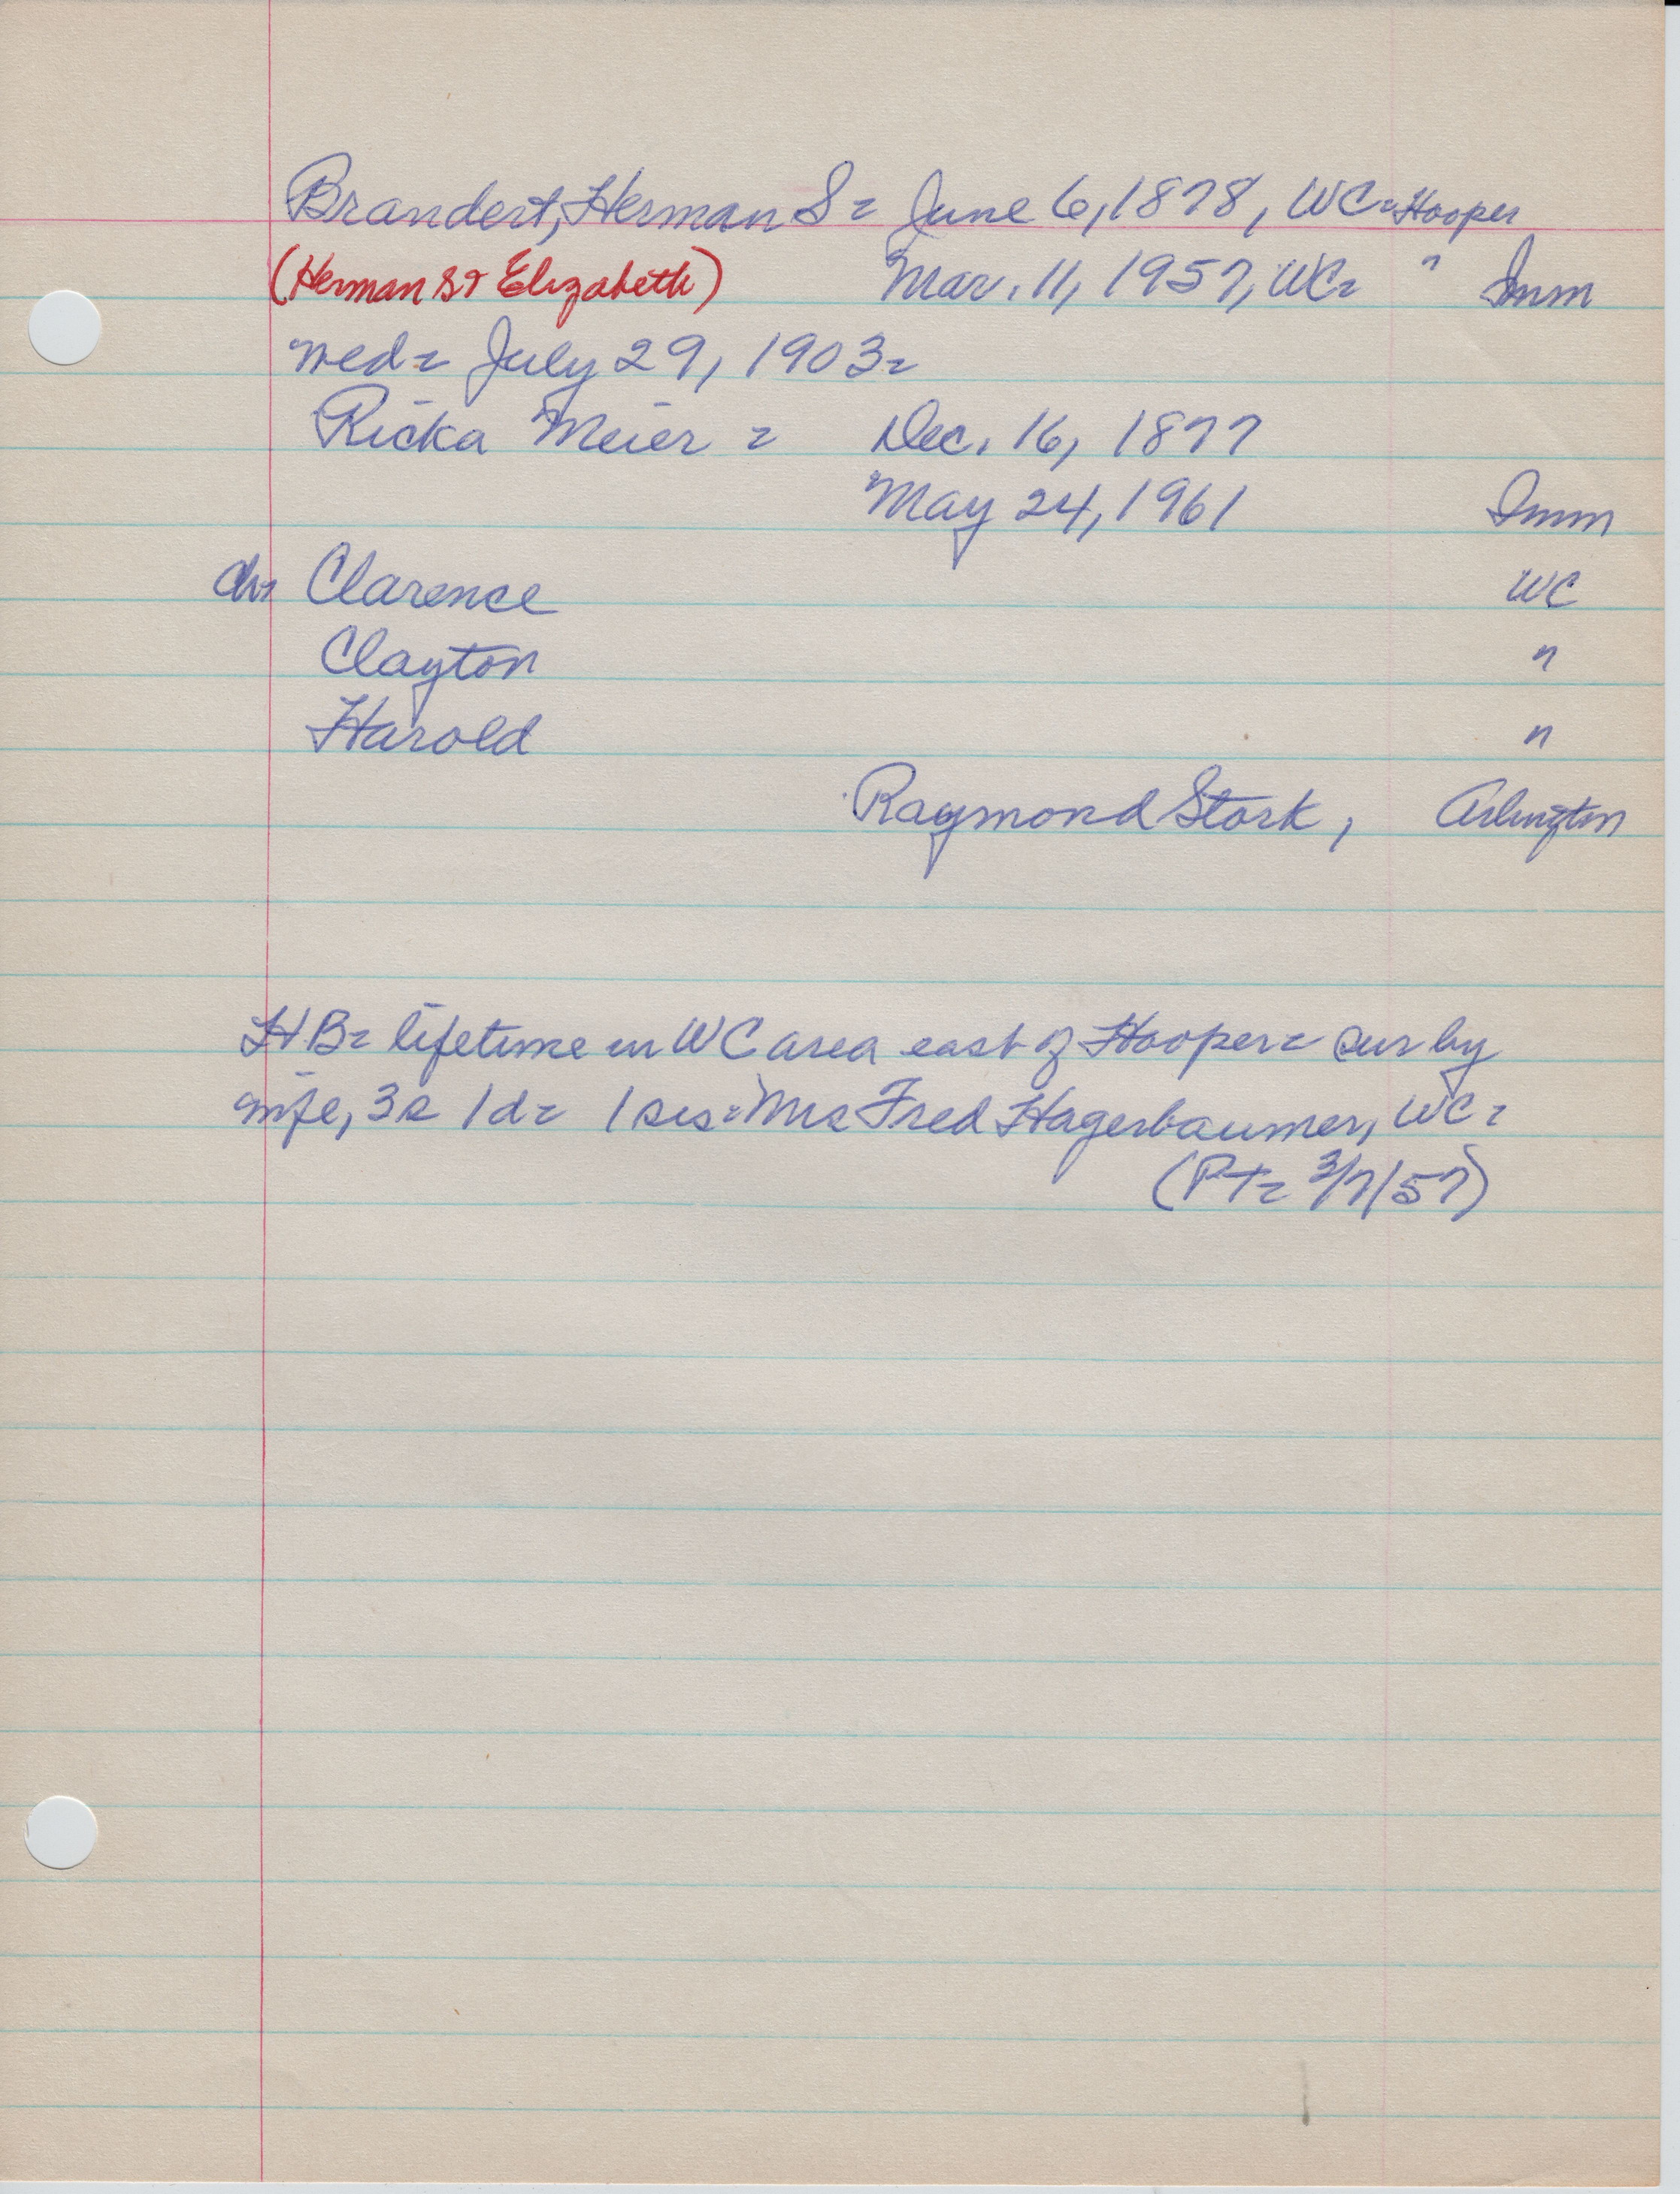 Brandert, Herman S = June 6, 1878, WC = Hooper
(Herman S + Elizabeth) Mar. 11, 1957, WC = " Imm
wed = July 29, 1903 =
Ricka Meier = Dec. 16, 1877
May 24, 1961 Imm
ch = Clarence WC
Clayton "
Harold "
Raymond Stork, Arlington
H B = lifetime in WC area east of Hooper = sur by
wife, 3 s 1 d = 1 sis = Mrs Fred Hagerbaumer, WC =
(PT = 3/7/57)